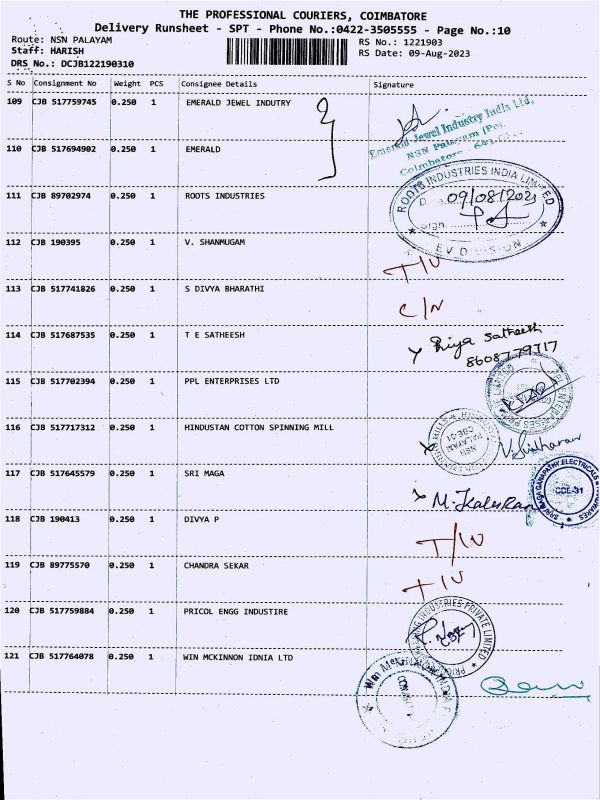 THE PROFESSIONAL COURIERS, COIMBATORE
Delivery Runsheet - SPT - Phone No.:0422-3505555 - Page No.:10
Route: NSN PALAYAM
RS No.: 1221903
Staff: HARISH
RS Date: 09-Aug-2023
DRS No.: DCJB122190310
S No Consignment No Weight PCS Consignee Details Signature
109 CJB 517759745 0.250 1 EMERALD JEWEL INDUTRY
Emerald Jewel Industry India Ltd,
NSN Palayam (Po),
Coimbatore
110 CJB 517694902 0.250 1 EMERALD
111 CJB 89702974 0.250 1 ROOTS INDUSTRIES
ROOTS INDUSTRIES INDIA LIMITED
09/08/2023
Sign
EV DIVISION
112 CJB 190395 0.250 1 V. SHANMUGAM
T/N
113 CJB 517741826 0.250 1 S DIVYA BHARATHI
C/N
114 CJB 517687535 0.250 1 T E SATHEESH
Priya Satheesh
8608779717
115 CJB 517702394 0.250 1 PPL ENTERPRISES LTD
116 CJB 517717312 0.250 1 HINDUSTAN COTTON SPINNING MILL
NSN
PALAYAM
CBE-31
117 CJB 517645579 0.250 1 SRI MAGA
GANAPATHY ELECTRICALS &
CBE-31
118 CJB 190413 0.250 1 DIVYA P
T/N
119 CJB 89775570 0.250 1 CHANDRA SEKAR
T/N
120 CJB 517759884 0.250 1 PRICOL ENGG INDUSTIRE
INDUSTRIES PRIVATE LIMITED
121 CJB 517764078 0.250 1 WIN MCKINNON IDNIA LTD